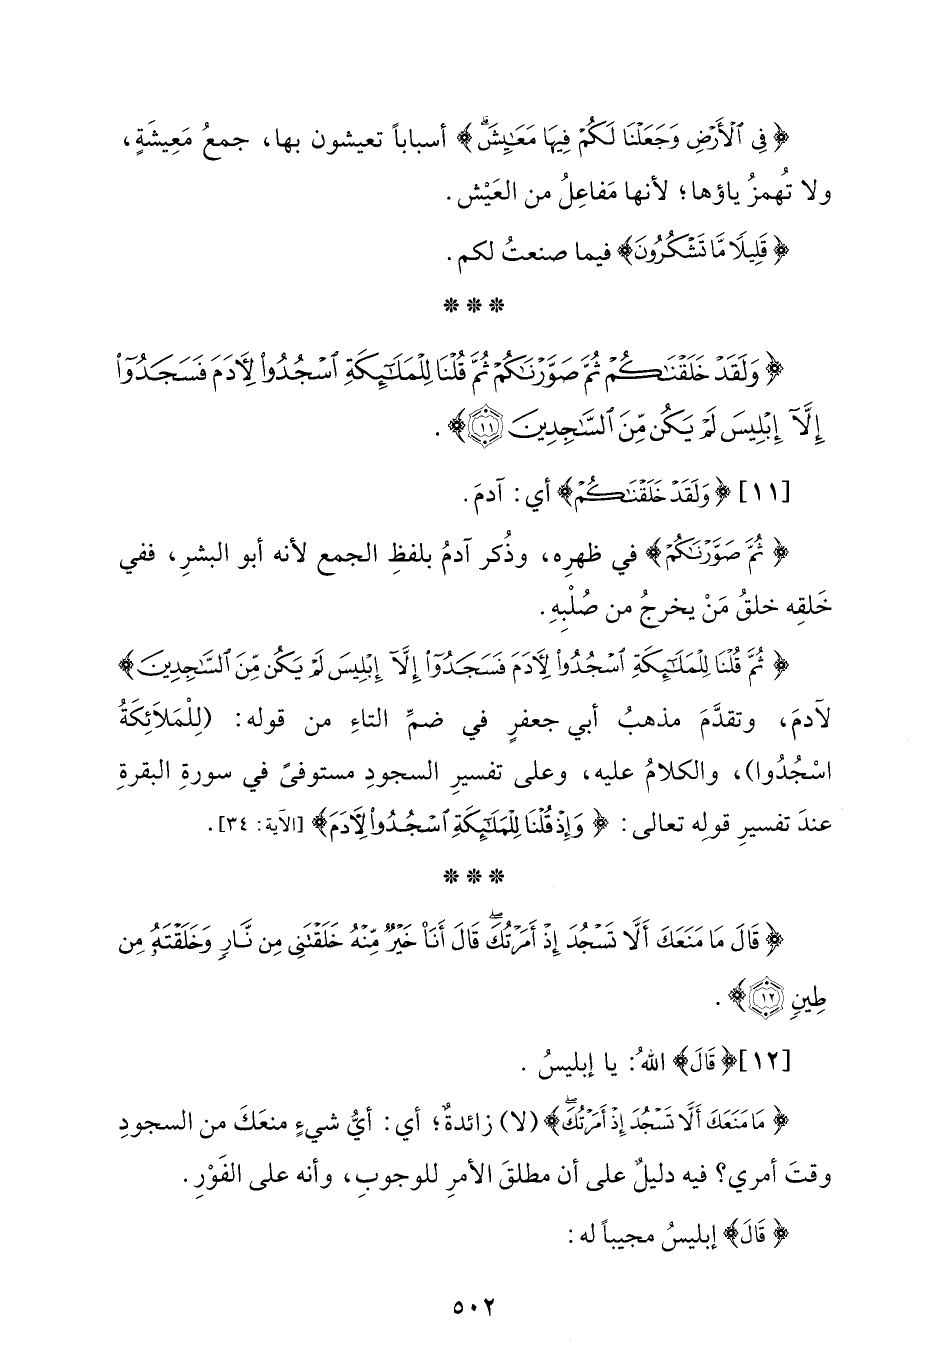 ﴿فِي ٱلْأَرْضِ وَجَعَلْنَا لَكُمْ فِيهَا مَعَٰيِشَۗ﴾ أسباباً تعيشون بها، جمعُ مَعِيشَةٍ،
ولا تُهمزُ ياؤها؛ لأنها مَفاعِلُ من العَيْش.
﴿قَلِيلًا مَّا تَشْكُرُونَ﴾ فيما صنعتُ لكم.
* * *
﴿وَلَقَدْ خَلَقْنَٰكُمْ ثُمَّ صَوَّرْنَٰكُمْ ثُمَّ قُلْنَا لِلْمَلَٰٓئِكَةِ ٱسْجُدُوا۟ لِأٓدَمَ فَسَجَدُوٓا۟
إِلَّآ إِبْلِيسَ لَمْ يَكُن مِّنَ ٱلسَّٰجِدِينَ ۝١١﴾.
[١١] ﴿وَلَقَدْ خَلَقْنَٰكُمْ﴾ أي: آدمَ.
﴿ثُمَّ صَوَّرْنَٰكُمْ﴾ في ظهرِه، وذُكر آدمُ بلفظِ الجمع لأنه أبو البشرِ، ففي
خَلقِه خلقُ مَنْ يخرجُ من صُلْبِهِ.
﴿ثُمَّ قُلْنَا لِلْمَلَٰٓئِكَةِ ٱسْجُدُوا۟ لِأٓدَمَ فَسَجَدُوٓا۟ إِلَّآ إِبْلِيسَ لَمْ يَكُن مِّنَ ٱلسَّٰجِدِينَ﴾
لآدمَ، وتقدَّمَ مذهبُ أبي جعفرٍ في ضمِّ التاءِ من قوله: (لِلْمَلاَئِكَةُ
اسْجُدُوا)، والكلامُ عليه، وعلى تفسيرِ السجودِ مستوفىً في سورةِ البقرةِ
عندَ تفسيرِ قولِه تعالى: ﴿وَإِذْ قُلْنَا لِلْمَلَٰٓئِكَةِ ٱسْجُدُوا۟ لِأٓدَمَ﴾ [الآية: ٣٤].
* * *
﴿قَالَ مَا مَنَعَكَ أَلَّا تَسْجُدَ إِذْ أَمَرْتُكَۖ قَالَ أَنَا۠ خَيْرٌ مِّنْهُ خَلَقْتَنِى مِن نَّارٍ وَخَلَقْتَهُۥ مِن
طِينٍ ۝١٢﴾.
[١٢] ﴿قَالَ﴾ اللهُ: يا إبليسُ.
﴿مَا مَنَعَكَ أَلَّا تَسْجُدَ إِذْ أَمَرْتُكَۖ﴾ (لا) زائدةٌ؛ أي: أيُّ شيءٍ منعَكَ من السجودِ
وقتَ أمري؟ فيه دليلٌ على أن مطلقَ الأمرِ للوجوبِ، وأنه على الفَوْرِ.
﴿قَالَ﴾ إبليسُ مجيباً له:
٥٠٢